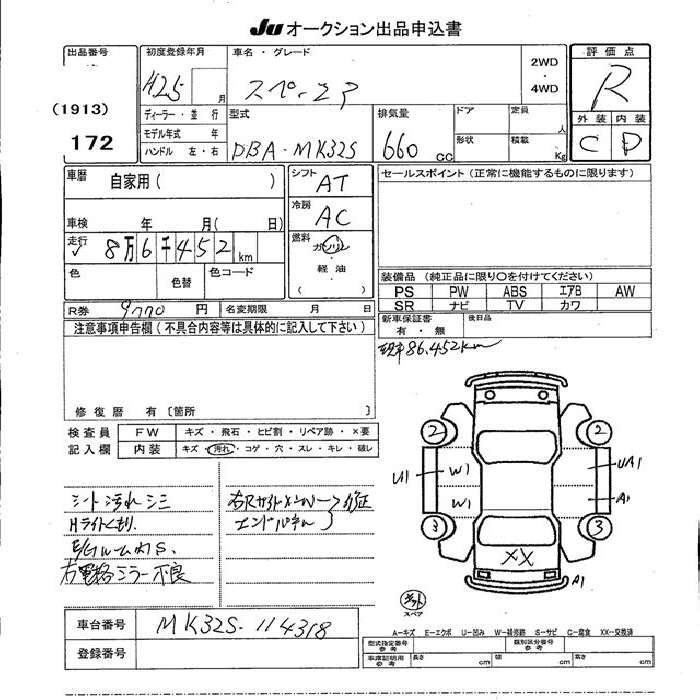 Ju オークション出品申込書
出品番号
(1913)
172
初度登録年月
H25 月
車名・グレード
スペーシア
2WD
・
4WD
評価点
R
外装 内装
C D
ディーラー・並行
モデル年式 年
ハンドル 左・右
型式
DBA-MK32S
排気量
660 CC
ドア
形状
定員 人
積載 Kg
車歴
自家用( )
車検 年 月( 日)
走行
8万6千452km
色
色替
色コード
R券 9770 円
名変期限 月 日
シフト AT
冷房 AC
燃料
ガソリン
軽油
( )
セールスポイント(正常に機能するものに限ります)
装備品(純正品に限り○を付けてください)
PS PW ABS エアB AW
SR ナビ TV カワ
新車保証書
有・無
後日品
注意事項申告欄(不具合内容等は具体的に記入して下さい)
修復歴 有〔箇所 〕
現車86,452km
検査員
記入欄
FW キズ・飛石・ヒビ割・リペア跡・×要
内装 キズ・汚れ・コゲ・穴・スレ・キレ・破レ
シート汚れシミ
Hライトくもり
右電格ミラー不良
修正
エンドパネル
2 2
3 3
U1 W1 W1
UA1
A1
XX
A1
スペア
車台番号 MK32S-114318
登録番号
A-キズ E-エクボ U-凹み W-補修跡 S-サビ C-腐食 XX-交換済
型式指定番号
参考
類別区分番号
参考
車庫証明用
参考
長さ cm
幅 cm
高さ cm